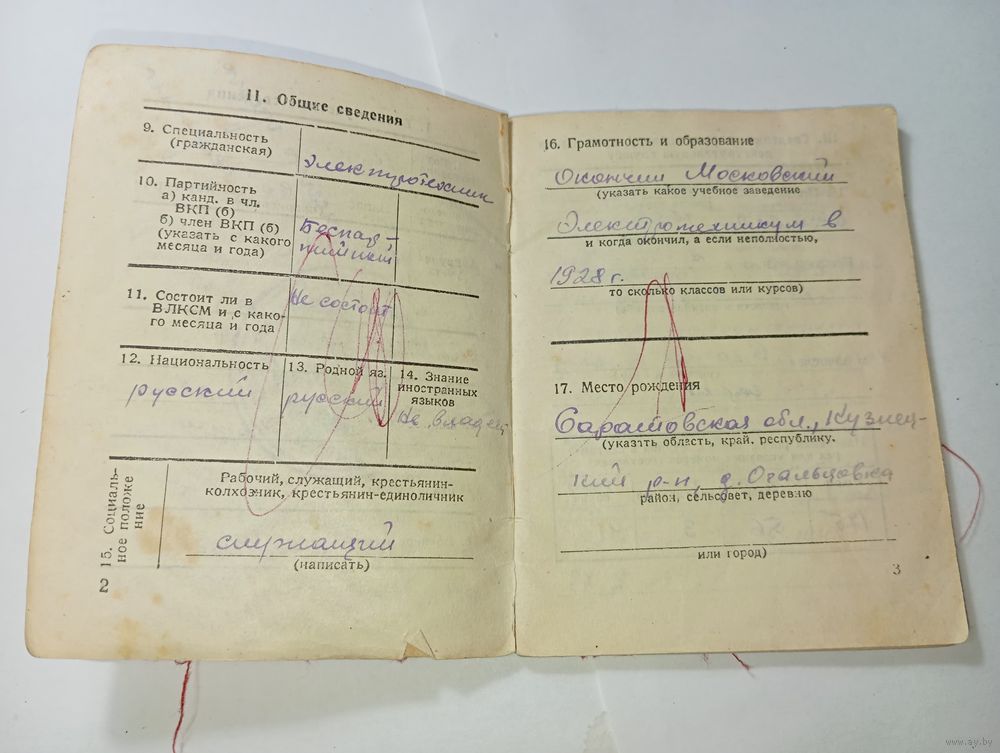 11. Общие сведения
9. Специальность
(гражданская)
Электротехник
10. Партийность
а) канд. в чл.
ВКП (б)
б) член ВКП (б)
(указать с какого
месяца и года)
Беспар-
тийный
11. Состоит ли в
ВЛКСМ и с како-
го месяца и года
Не состоит
12. Национальность
русский
13. Родной яз.
русский
14. Знание
иностранных
языков
Не владеет
15. Социаль-
ное положе
ние
Рабочий, служащий, крестьянин-
колхозник, крестьянин-единоличник
служащий
(написать)
2
16. Грамотность и образование
Окончил Московский
(указать какое учебное заведение
Электротехникум в
и когда окончил, а если неполностью,
1928 г.
то сколько классов или курсов)
17. Место рождения
Саратовская обл., Кузнец-
(указать область, край, республику.
кий р-н, д.
район, сельсовет, деревню
или город)
3
www.ay.by